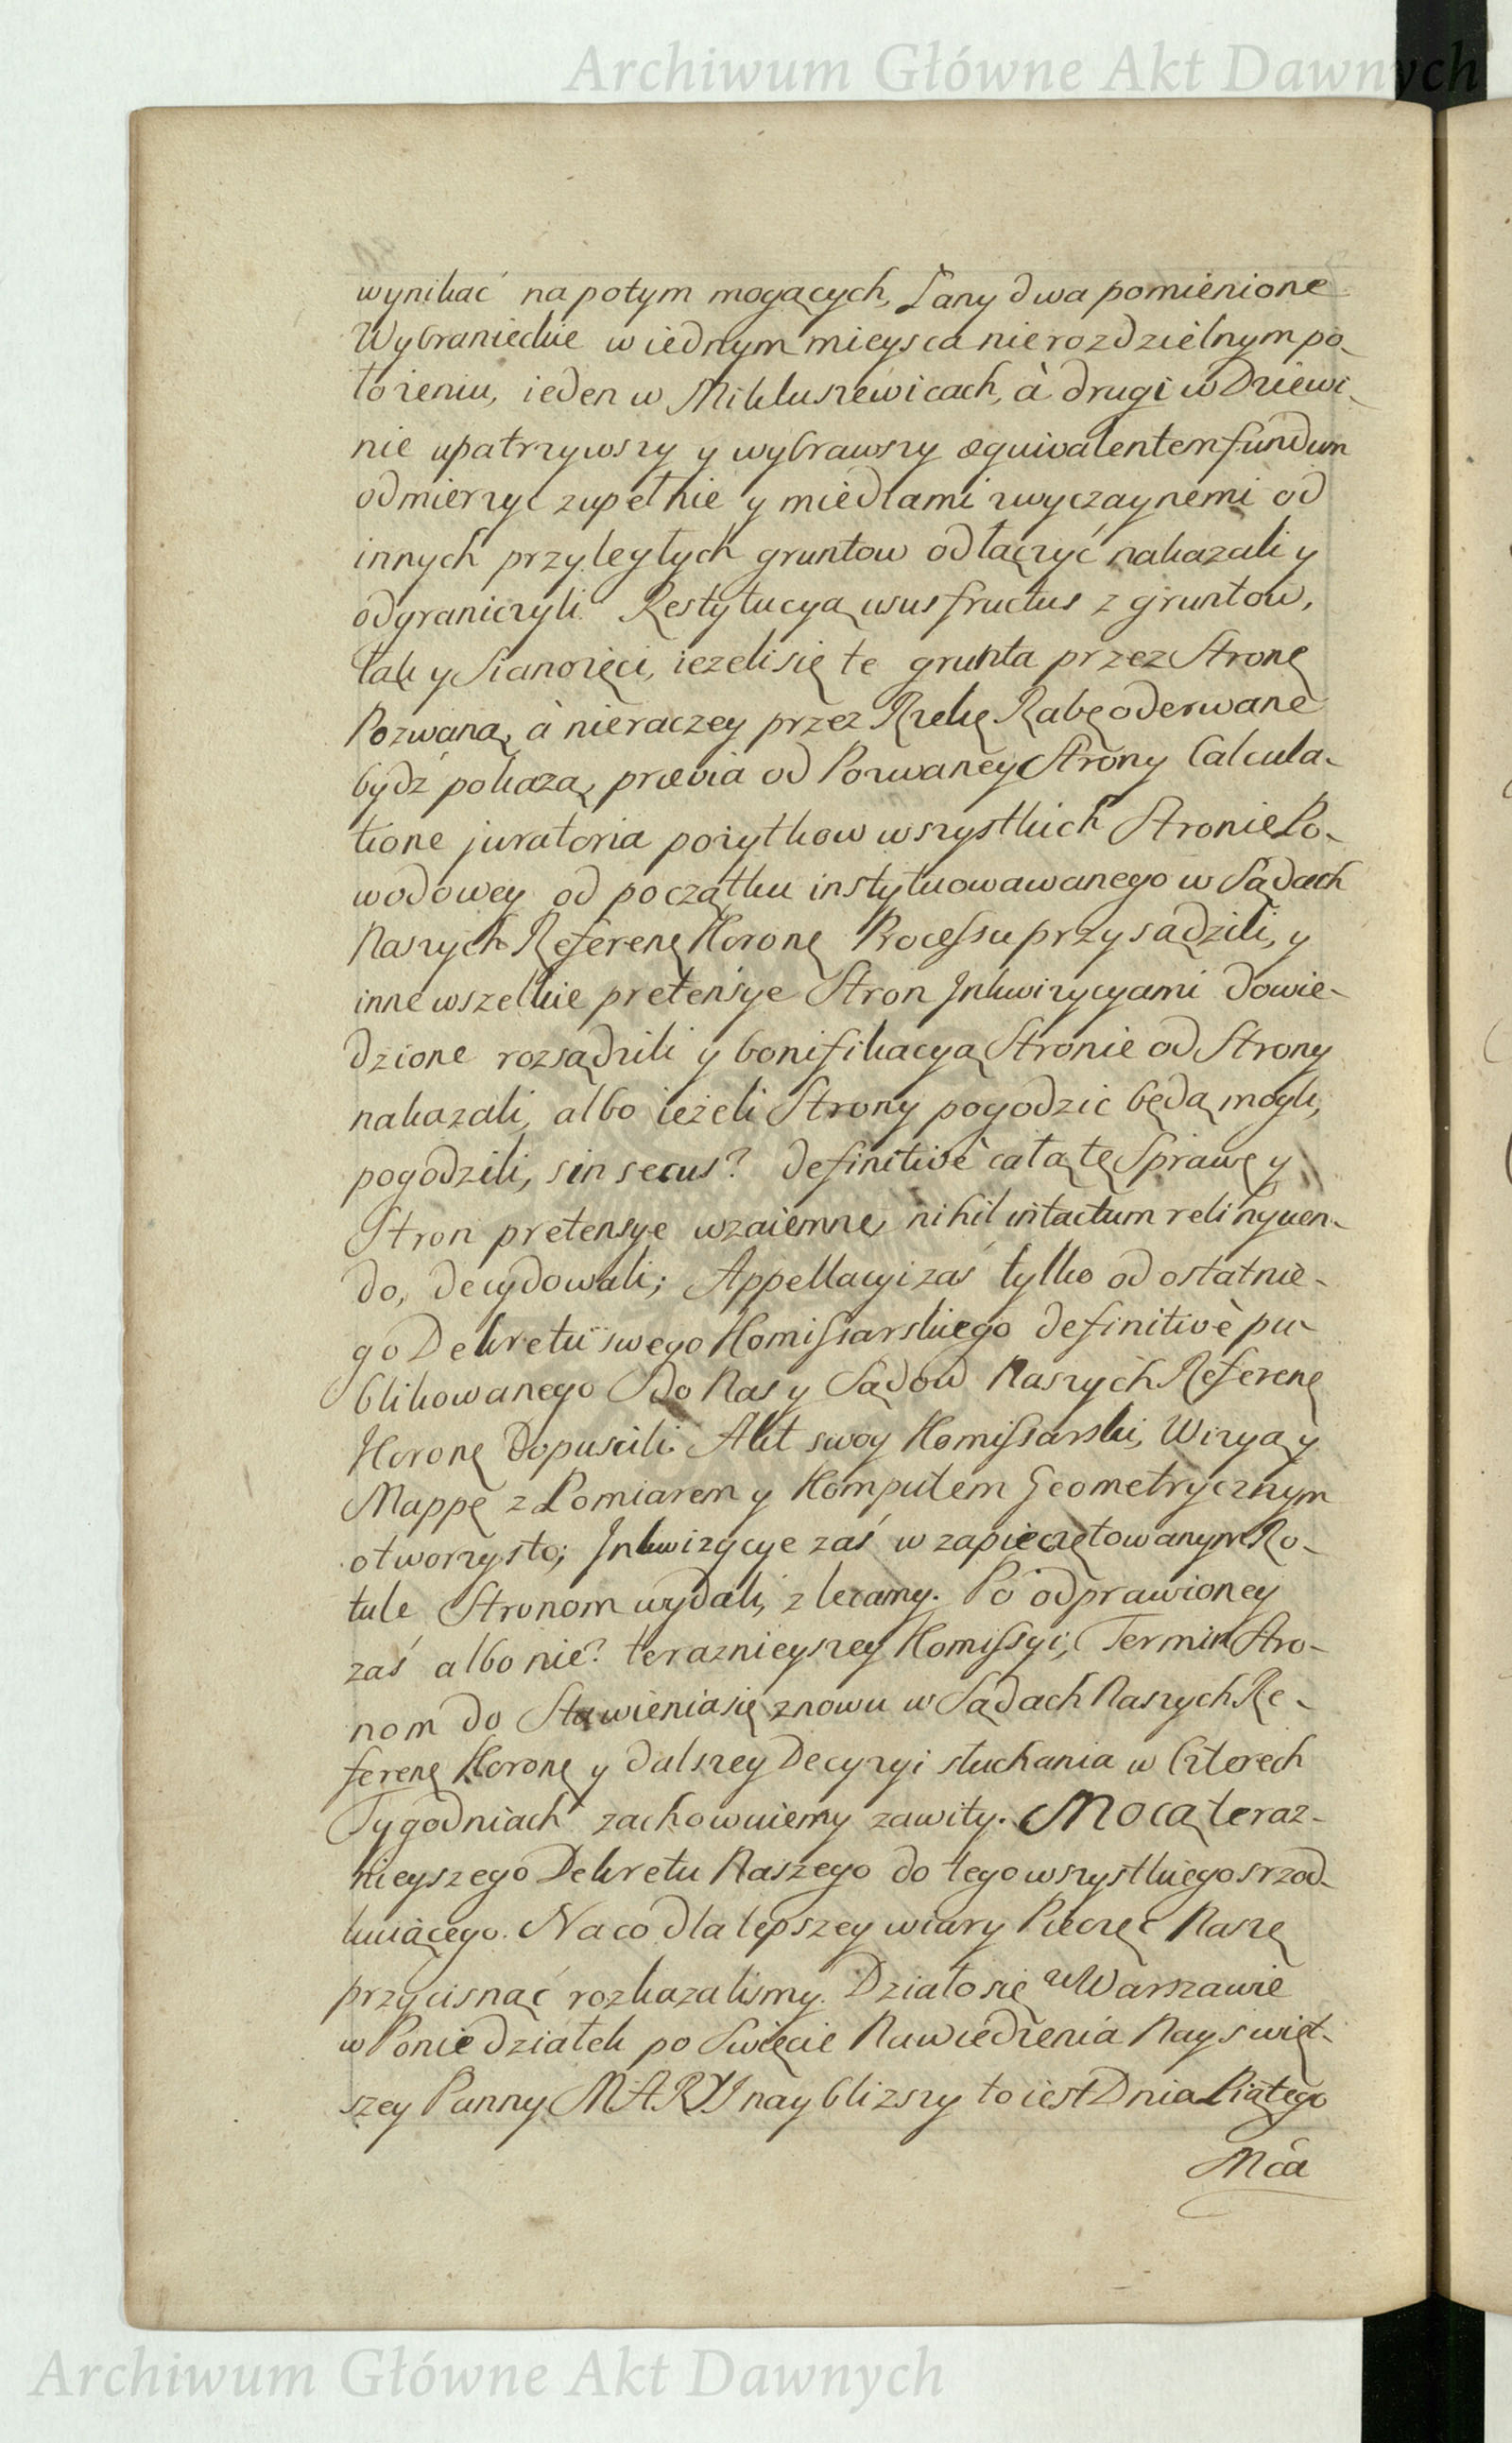 Archiwum Główne Akt Dawnych
wynikać napotym mogących, Łany dwa pomienione
Wybranieckie w iednym mieysca nierozdzielnym po-
łożeniu, ieden w Mikluszewicach, à drugi w Drzewi-
nie upatrzywszy y wybrawszy æquivalentem fundum
odmierzyc zupełnie y miedzami zwyczaynemi od
innych przyległych gruntow odłączyć nakazali y
odgraniczyli. Restytucyą ususfructus z gruntow,
tak y Sianożęci, ieżeli się te grunta przez Stronę
Pozwaną, à nieraczey przez Rzekę Rabę oderwane
bydź pokażą, prævia od Pozwaney Strony Calcula-
tione juratoria pożytkow wszystkich Stronie Po-
wodowey od początku instytuowawanego w Sądach
Naszych Referen Koron Processu przysądzili, y
inne wszelkie pretensye Stron Inkwizycyami dowie-
dzione rozsądzili y bonifikacyą Stronie od Strony
nakazali, albo ieżeli Strony pogodzic będą mogli,
pogodzili, sin secus? definitivè całą tę Sprawę y
Stron pretensye wzaiemne, nihil intactum relinquen-
do, decydowali; Appellacyi zaś tylko od ostatnie-
go Dekretu swego Komissarskiego definitivè pu-
blikowanego do Nas y Sądow Naszych Referen
Koron dopuscili. Akt swoy Komissarski, Wizyą y
Mappę z Pomiarem y Komputem Geometrycznym
otworzysto; Inkwizycye zaś w zapieczętowanym Ro-
tule Stronom wydali, zlecamy. Po odprawioney
zaś albo nie? teraznieyszey Komissyi, Termin Stro-
nom do Stawienia się znowu w Sądach Naszych Re-
feren Koron y dalszey Decyzyi słuchania w Czterech
Tygodniach zachowuiemy zawity. Mocą teraz-
nieyszego Dekretu Naszego do tego wszystkiego srzod-
kuiącego. Na co dla lepszey wiary Pieczęć Naszę
przycisnąć rozkazalismy. Działo się w Warszawie
w Poniedziałek po Swięcie Nawiedzenia Nayswięt-
szey Panny MARYI naybliższy to iest Dnia Piątego
Mca
Archiwum Główne Akt Dawnych